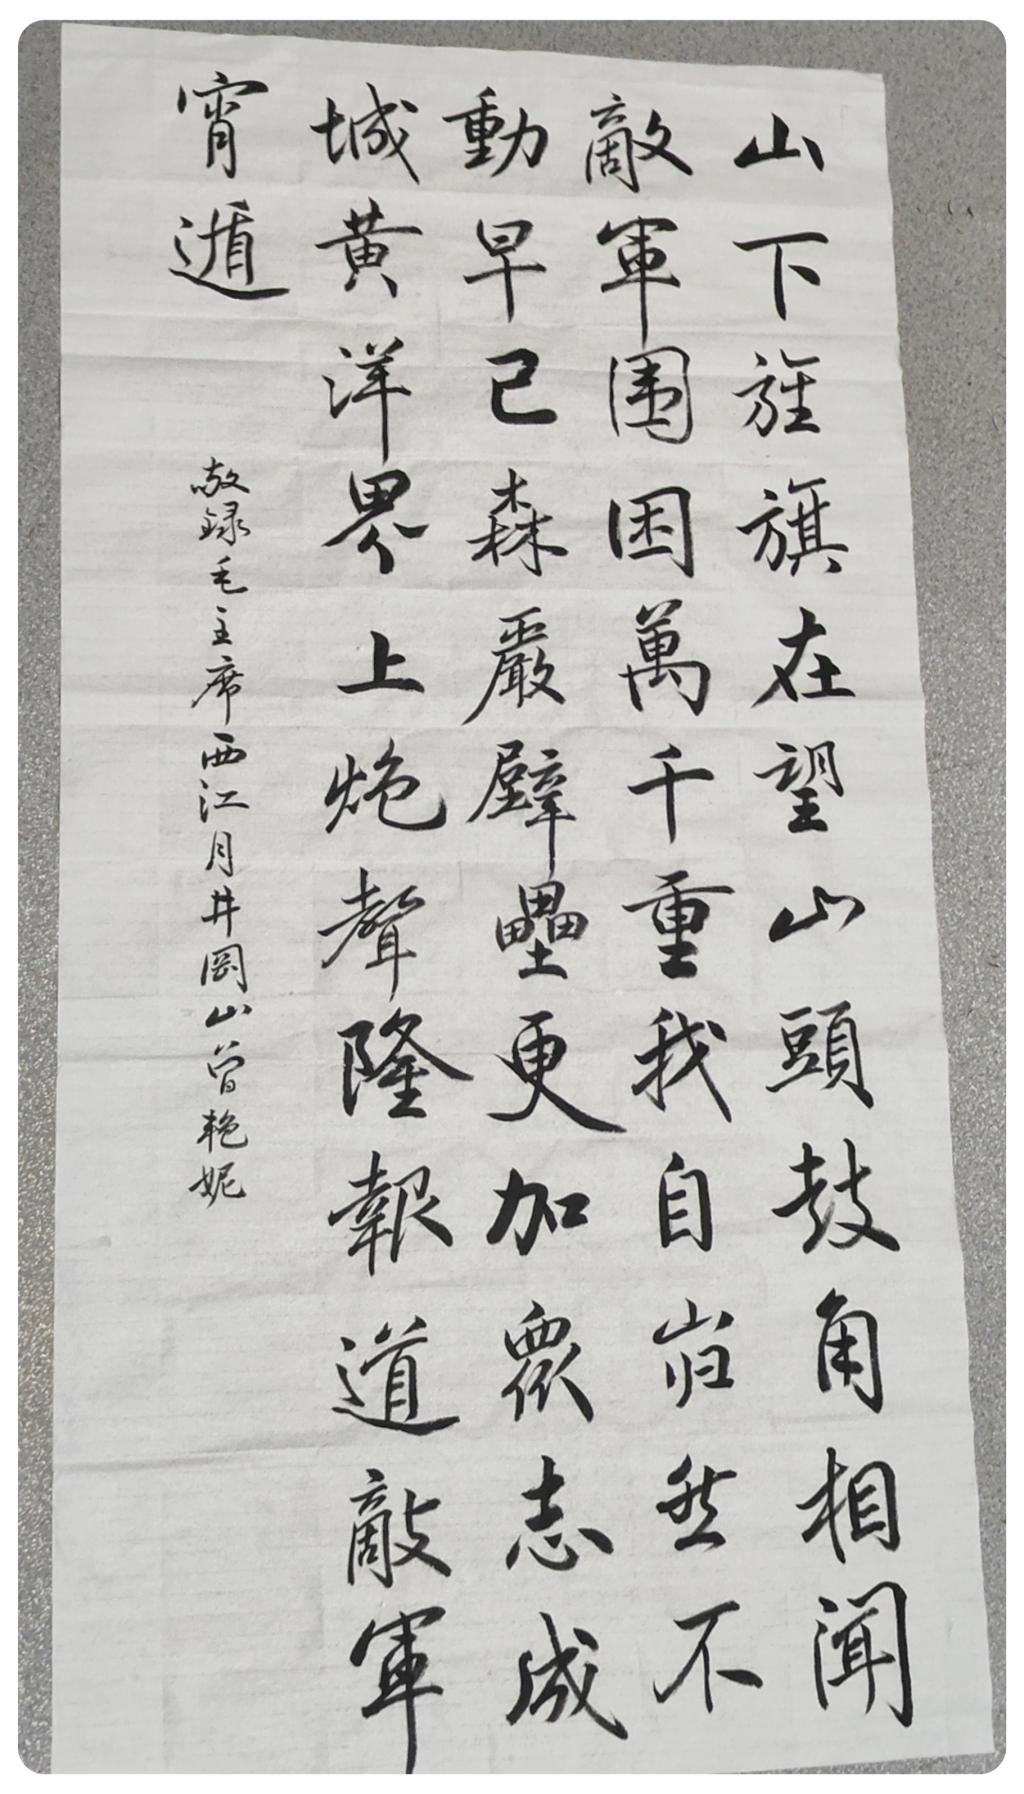 山下旌旗在望山頭鼓角相聞
敵軍围困萬千重我自岿然不
動早已森嚴壁壘更加眾志成
城黄洋界上炮聲隆報道敵軍
宵遁
敬録毛主席西江月井岡山曾艳妮